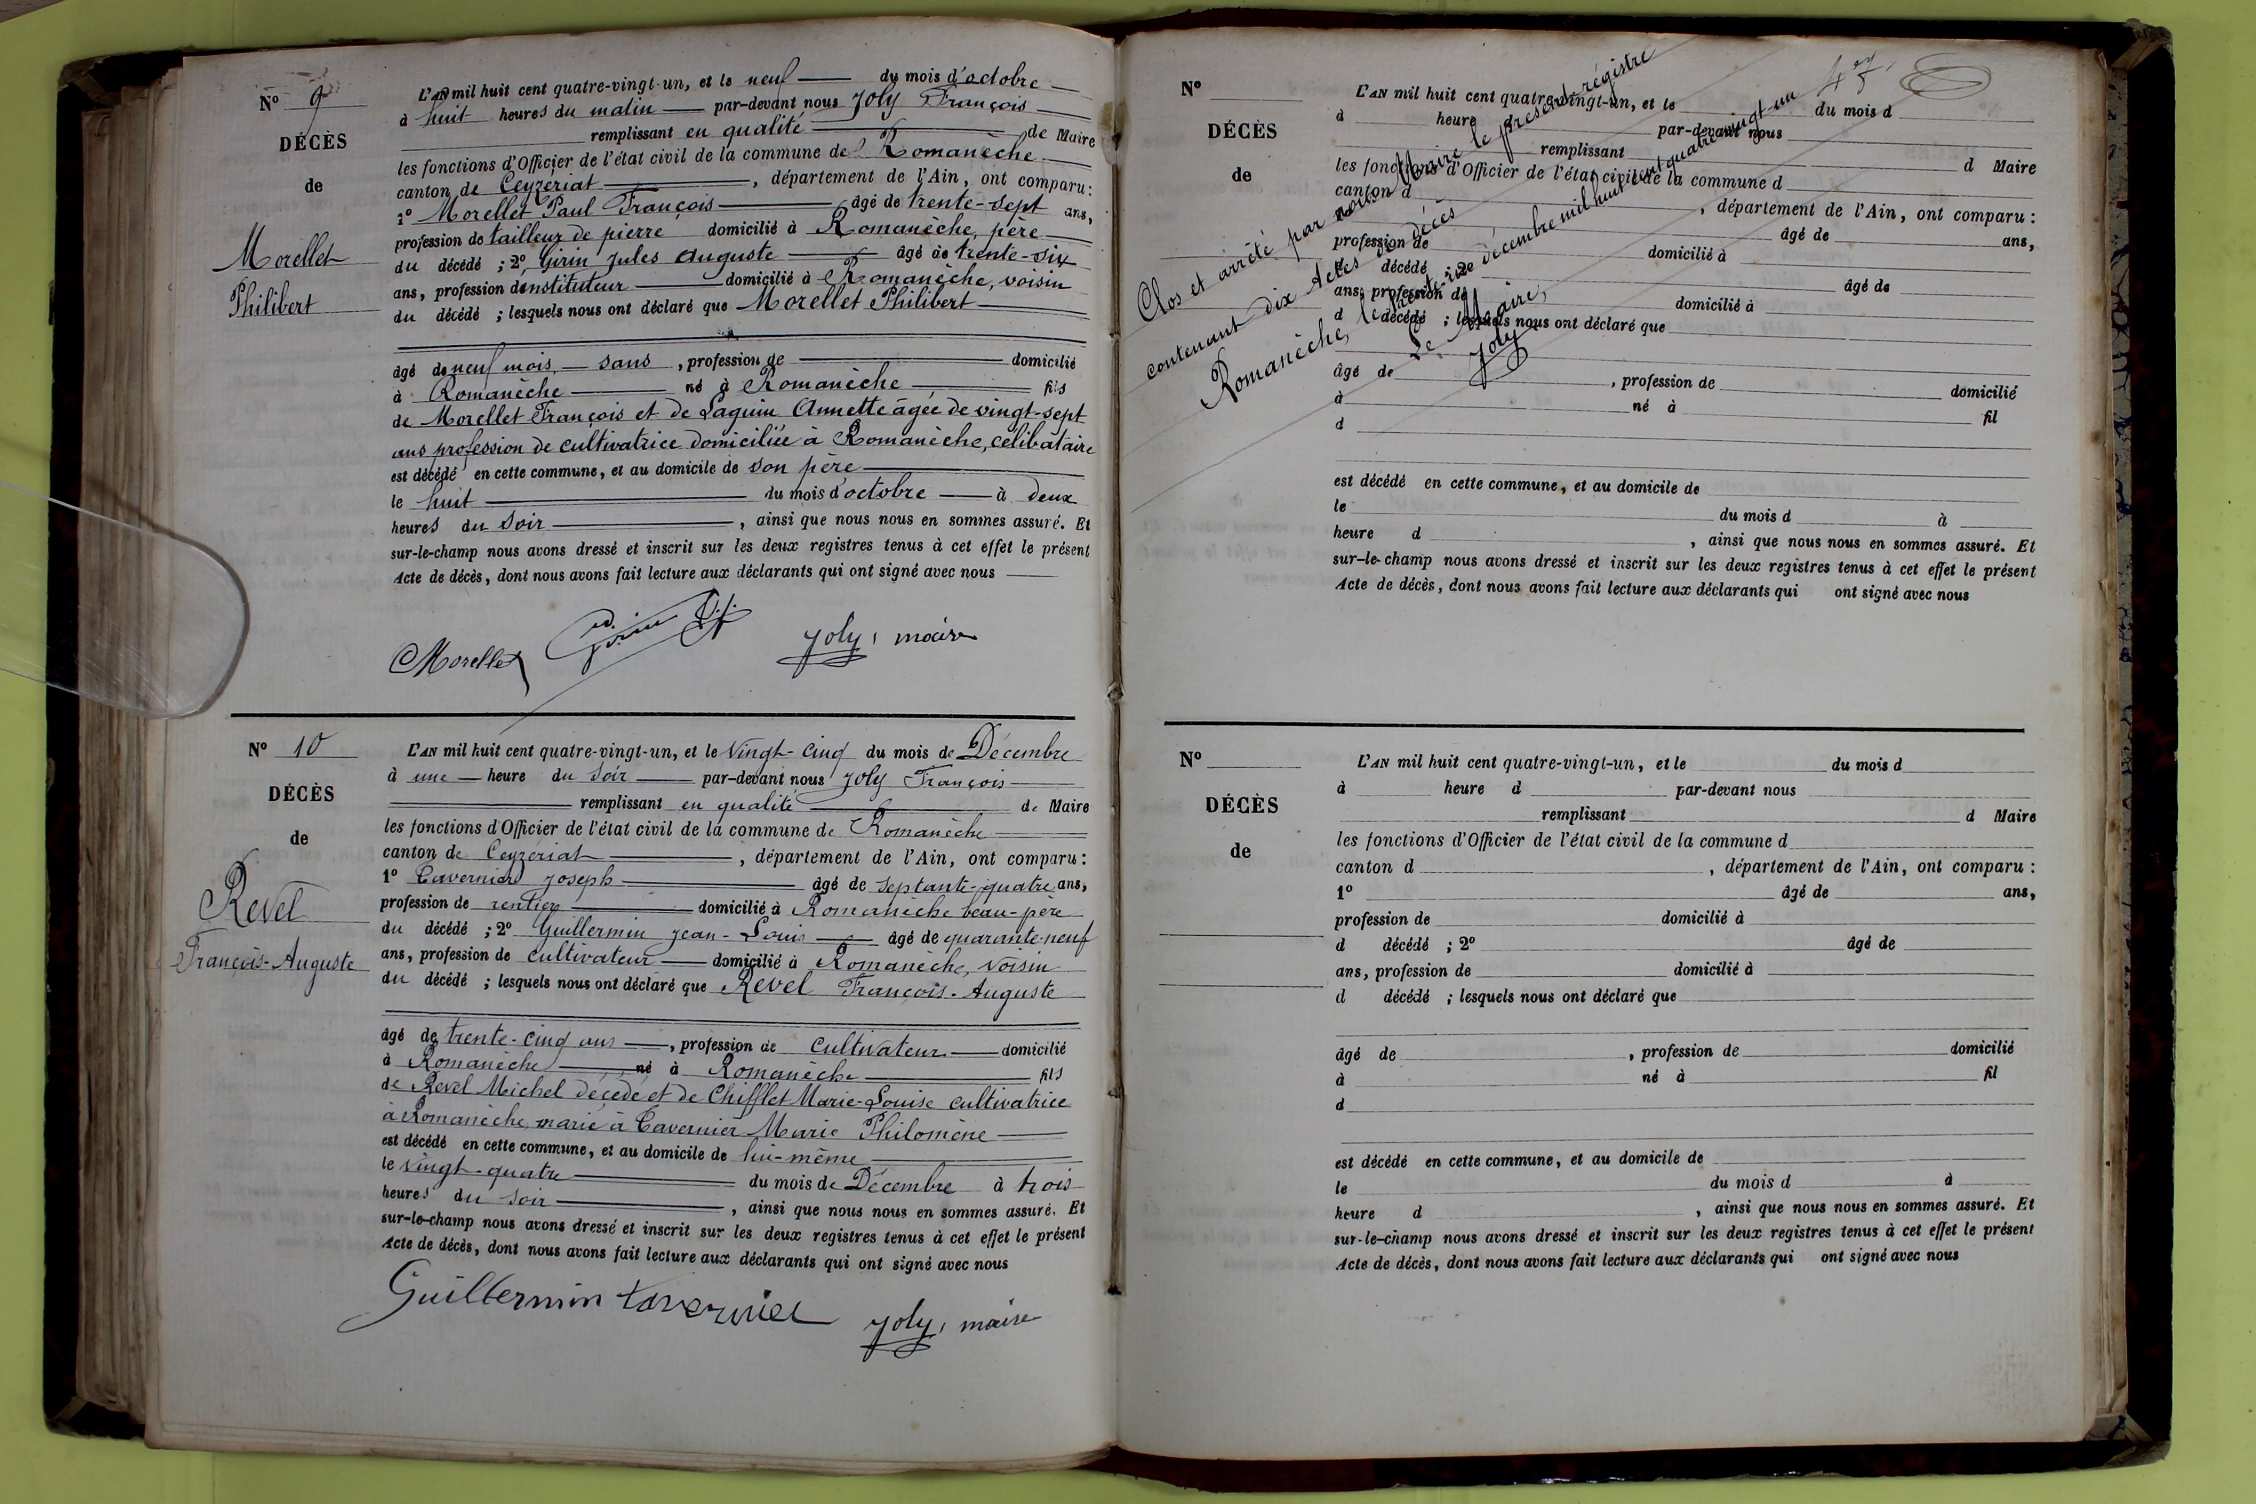 N° 9
DÉCÈS
de
Morellet
Philibert
L'AN mil huit cent quatre-vingt-un, et le neuf du mois d'octobre
à huit heures du matin par-devant nous Joly François
remplissant en qualité de Maire
les fonctions d'Officier de l'état civil de la commune de Romanèche
canton de Ceyzériat, département de l'Ain, ont comparu :
1° Morellet Paul François âgé de trente-sept ans,
profession de tailleur de pierre domicilié à Romanèche, père
du décédé ; 2° Girin Jules Auguste âgé de trente-six
ans, profession d'instituteur domicilié à Romanèche, voisin
du décédé ; lesquels nous ont déclaré que Morellet Philibert
âgé de neuf mois sans, profession de domicilié
à Romanèche né à Romanèche fils
de Morellet François et de Laguin Annette âgée de vingt-sept
ans profession de cultivatrice domiciliée à Romanèche, célibataire
est décédé en cette commune, et au domicile de son père
le huit du mois d'octobre à deux
heures du soir, ainsi que nous nous en sommes assuré. Et
sur-le-champ nous avons dressé et inscrit sur les deux registres tenus à cet effet le présent
Acte de décès, dont nous avons fait lecture aux déclarants qui ont signé avec nous
Morellet Girin Joly, maire
N° 10
DÉCÈS
de
Revel
François-Auguste
L'AN mil huit cent quatre-vingt-un, et le vingt-cinq du mois de Décembre
à une heure du soir par-devant nous Joly François
remplissant en qualité de Maire
les fonctions d'Officier de l'état civil de la commune de Romanèche
canton de Ceyzériat, département de l'Ain, ont comparu :
1° Tavernier Joseph âgé de septante-quatre ans,
profession de rentier domicilié à Romanèche beau-père
du décédé ; 2° Guillermin Jean-Louis âgé de quarante-neuf
ans, profession de cultivateur domicilié à Romanèche, voisin
du décédé ; lesquels nous ont déclaré que Revel François-Auguste
âgé de trente-cinq ans, profession de cultivateur domicilié
à Romanèche né à Romanèche fils
de Revel Michel décédé et de Chifflet Marie-Louise cultivatrice
à Romanèche, marié à Tavernier Marie Philomène
est décédé en cette commune, et au domicile de lui-même
le vingt-quatre du mois de Décembre à trois
heures du soir, ainsi que nous nous en sommes assuré. Et
sur-le-champ nous avons dressé et inscrit sur les deux registres tenus à cet effet le présent
Acte de décès, dont nous avons fait lecture aux déclarants qui ont signé avec nous
Guillermin tavernier Joly, maire
N°
DÉCÈS
de
L'AN mil huit cent quatre-vingt-un, et le du mois d
à heure d par-devant nous
remplissant d Maire
les fonctions d'Officier de l'état civil de la commune d
canton d, département de l'Ain, ont comparu :
1° âgé de ans,
profession de domicilié à
d décédé ; 2° âgé de
ans, profession de domicilié à
d décédé ; lesquels nous ont déclaré que
âgé de, profession de domicilié
à né à fil
d
est décédé en cette commune, et au domicile de
le du mois d à
heure d, ainsi que nous nous en sommes assuré. Et
sur-le-champ nous avons dressé et inscrit sur les deux registres tenus à cet effet le présent
Acte de décès, dont nous avons fait lecture aux déclarants qui ont signé avec nous
Clos et arrêté par nous Maire le présent régistre
contenant dix Actes de décès
Romanèche, le trente-un décembre mil huit cent quatre-vingt-un
Le Maire,
Joly
N°
DÉCÈS
de
L'AN mil huit cent quatre-vingt-un, et le du mois d
à heure d par-devant nous
remplissant d Maire
les fonctions d'Officier de l'état civil de la commune d
canton d, département de l'Ain, ont comparu :
1° âgé de ans,
profession de domicilié à
d décédé ; 2° âgé de
ans, profession de domicilié à
d décédé ; lesquels nous ont déclaré que
âgé de, profession de domicilié
à né à fil
d
est décédé en cette commune, et au domicile de
le du mois d à
heure d, ainsi que nous nous en sommes assuré. Et
sur-le-champ nous avons dressé et inscrit sur les deux registres tenus à cet effet le présent
Acte de décès, dont nous avons fait lecture aux déclarants qui ont signé avec nous